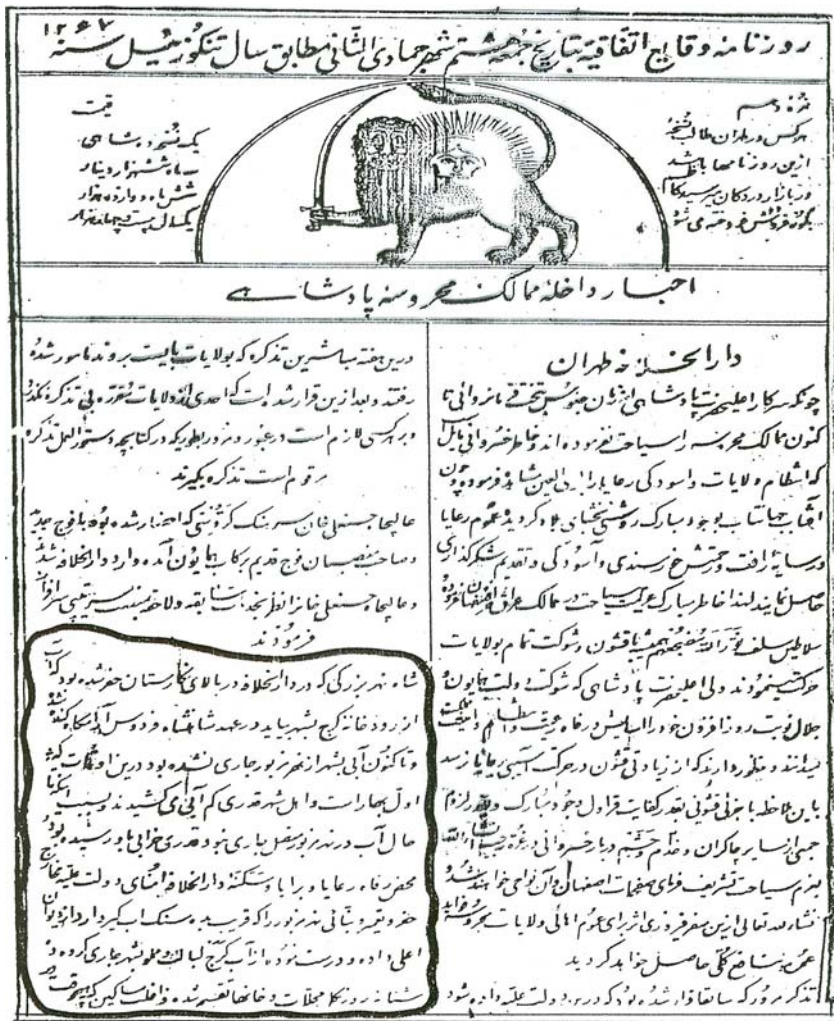 روزنامه وقایع اتفاقیه بتاریخ جمعه هشتم شهر جمادی الثانی مطابق سال تنگوز ئیل سنه ۱۲۶۷
نمره دهم
هرکس در طهران طالب نسخهٔ
ازین روزنامها باشد
در بازار در دکان میرسید کاظم
بلور فروش فروخته می شود
قیمت
یک نسخه ده شاهی
سه ماه ششهزار دینار
شش ماه دوازده هزار
یکسال بیست و چهار هزار
اخبار داخله ممالک محروسه پادشاهی
دارالخلافه طهران
چونکه سرکار اعلیحضرت پادشاهی از زمان جلوس بتخت فرمانروائی تا
کنون ممالک محروسه را سیاحت نفرموده اند و خاطر خسروانی مایل
که انتظام ولایات و اسودگی رعایا را برای العین مشاهده فرموده چون
آفتاب جهانتاب بوجود مبارک روشنی بخشای بلاد گردیده عموم رعایا
در سایه رافت و مرحمتش خرسندی و آسودگی و تقدیم شکرگذاری
حاصل نمایند لهذا خاطر مبارک عزیمت سیاحت در ممالک عراق و اصفهان
سلاطین سلف همیشه با قشون و شوکت تمام بولایات
حرکت مینمودند ولی اعلیحضرت پادشاهی که شوکت دولت همایون و
جلال نوبت روز افزون خود را بالمش در رفاه رعیت و انتظام مملکت
میدانند و منظور دارند که از زیادتی قشون در حرکت آسیبی برعایا نرسد
باین ملاحظه با جزئی قشونی بقدر کفایت قراول وجود مبارک و بقدر لزوم
جمعی از سایر چاکران و خدام و حشم دربار خسروانی در غره
عزم سیاحت تشریف فرمای صفحات اصفهان و آن نواحی خواهند شد
انشاءالله تعالی ازین سفر فیروزی اثر برای عموم اهالی ولایات محروسه فواید
عمده و منافع کلی حاصل خواهد گردید
تذکره مرور که سابقا قرار شده بود که در بین دولت علیه داده شود
درین هفته مباشرین تذکره که بولایات بایست بروند مامور شده
رفتند و بعد ازین قرار شده است که احدی از ولایات مقرره بی تذکره نگذرد
و بر هرکسی لازم است در عبور و مرور بطوریکه در کتابچه دستورالعمل تذکره
مرقوم است تذکره بگیرند
عالیجاه حسنعلی خان سرهنگ گروسی که احضار شده بود با فوج جدید
و صاحب منصبان فوج قدیم برکاب همایون آمده وارد دارالخلافه شد
و عالیجاه حسنعلی خان را نظر بخدمات سابقه و لاحقه بمنصب سرتیپی سرافراز
فرمودند
شاه نهر بزرگی که در دارالخلافه در بالای نگارستان حفر شده بود که آب
از رودخانه کرج بشهر بیاید در عهد شاهنشاه فردوس آرامگاه کنده شد
و تا کنون آبی بشهر از نهر مزبور جاری نشده بود درین اوقات که
اول بهار است و اهل شهر قدری کم آبی می کشیدند و بسبب اینکه تا
حال آب در نهر مزبور متصل جاری نبود قدری خرابی باو رسیده بود
محض رفاه رعایا و برایا و سکنه دارالخلافه امنای دولت علیه مخارج
حفر و تعمیر و تنقیه نهر مزبور را که قریب ده سنگ آب گیر دارد از دیوان
اعلی داده و درست نموده از آب کرج لبالب و مملو بشهر جاری کرده و
شبانه روز بکل محلات و خانها تقسیم شده و اغلب ساکنین که